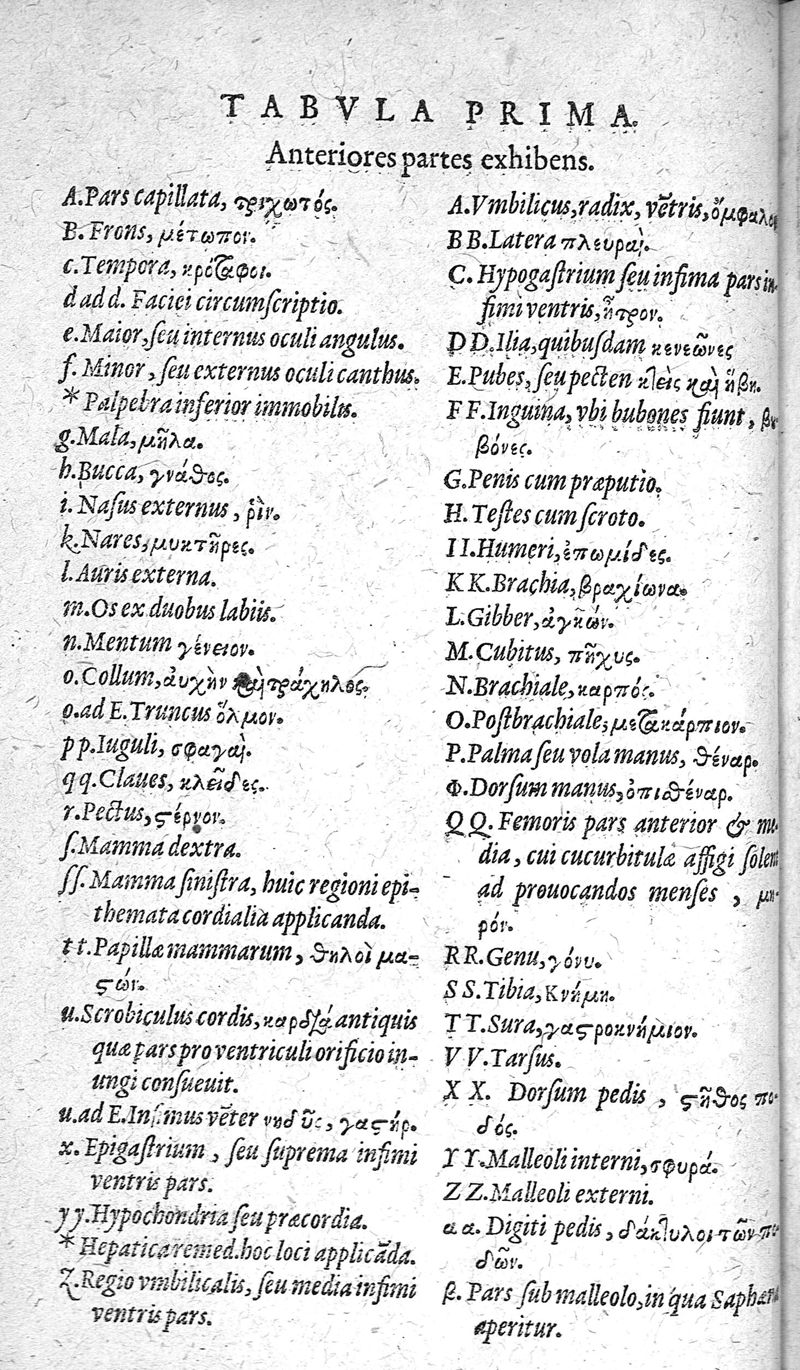 TABVLA PRIMA.
Anteriores partes exhibens.
A. Pars capillata, τριχωτός.
B. Frons, μέτωπον.
c. Tempora, κρόταφοι.
d ad d. Faciei circumſcriptio.
e. Maior, ſeu internus oculi angulus.
f. Minor, ſeu externus oculi canthus.
* Palpebra inferior immobilis.
g. Mala, μῆλα.
h. Bucca, γνάθος.
i. Naſus externus, ῥὶν.
k. Nares, μυκτῆρες.
l. Auris externa.
m. Os ex duobus labiis.
n. Mentum γένειον.
o. Collum, ἀυχὴν καὶ τράχηλος.
o. ad E. Truncus ὅλμον.
p p. Iuguli, σφαγαὶ.
q q. Claues, κλεῖδες.
r. Pectus, ϛέρνον.
ſ. Mamma dextra.
ſſ. Mamma ſiniſtra, huic regioni epi-
themata cordialia applicanda.
t t. Papillæ mammarum, θηλοὶ μα-
ϛῶν.
u. Scrobiculus cordis, καρδία antiquis
quæ pars pro ventriculi orificio in-
ungi conſueuit.
u. ad E. Infimus vēter νηδῦς, γαϛήρ.
x. Epigaſtrium, ſeu ſuprema infimi
ventris pars.
y y. Hypochondria ſeu præcordia.
* Hepatica remed. hoc loci applicāda.
Z. Regio vmbilicalis, ſeu media infimi
ventris pars.
A. Vmbilicus, radix, vētris, ὄμφαλο
B B. Latera πλευραὶ.
C. Hypogaſtrium ſeu infima pars in-
fimi ventris, ἦτρον.
D D. Ilia, quibuſdam κενεῶνες
E. Pubes, ſeu pecten κλεὶς καὶ ἥβη.
F F. Inguina, vbi bubones fiunt, βυ
βόνες.
G. Penis cum præputio.
H. Teſtes cum ſcroto.
I I. Humeri, ἐπωμίδες.
K K. Brachia, βραχίωνα.
L. Gibber, ἀγκών.
M. Cubitus, πῆχυς.
N. Brachiale, καρπός.
O. Poſtbrachiale, μετακάρπιον.
P. Palma ſeu vola manus, θέναρ.
Φ. Dorſum manus, ὀπιθέναρ.
Q Q. Femoris pars anterior & me-
dia, cui cucurbitulæ affigi ſolent
ad prouocandos menſes, μη-
ρόν.
R R. Genu, γόνυ.
S S. Tibia, Κνήμη.
T T. Sura, γαϛροκνήμιον.
V V. Tarſus.
X X. Dorſum pedis, ϛῆθος πο-
δός.
Y Y. Malleoli interni, σφυρά.
Z Z. Malleoli externi.
α α. Digiti pedis, δάκτυλοι τῶν πο-
δῶν.
β. Pars ſub malleolo, in qua Saphæna
aperitur.